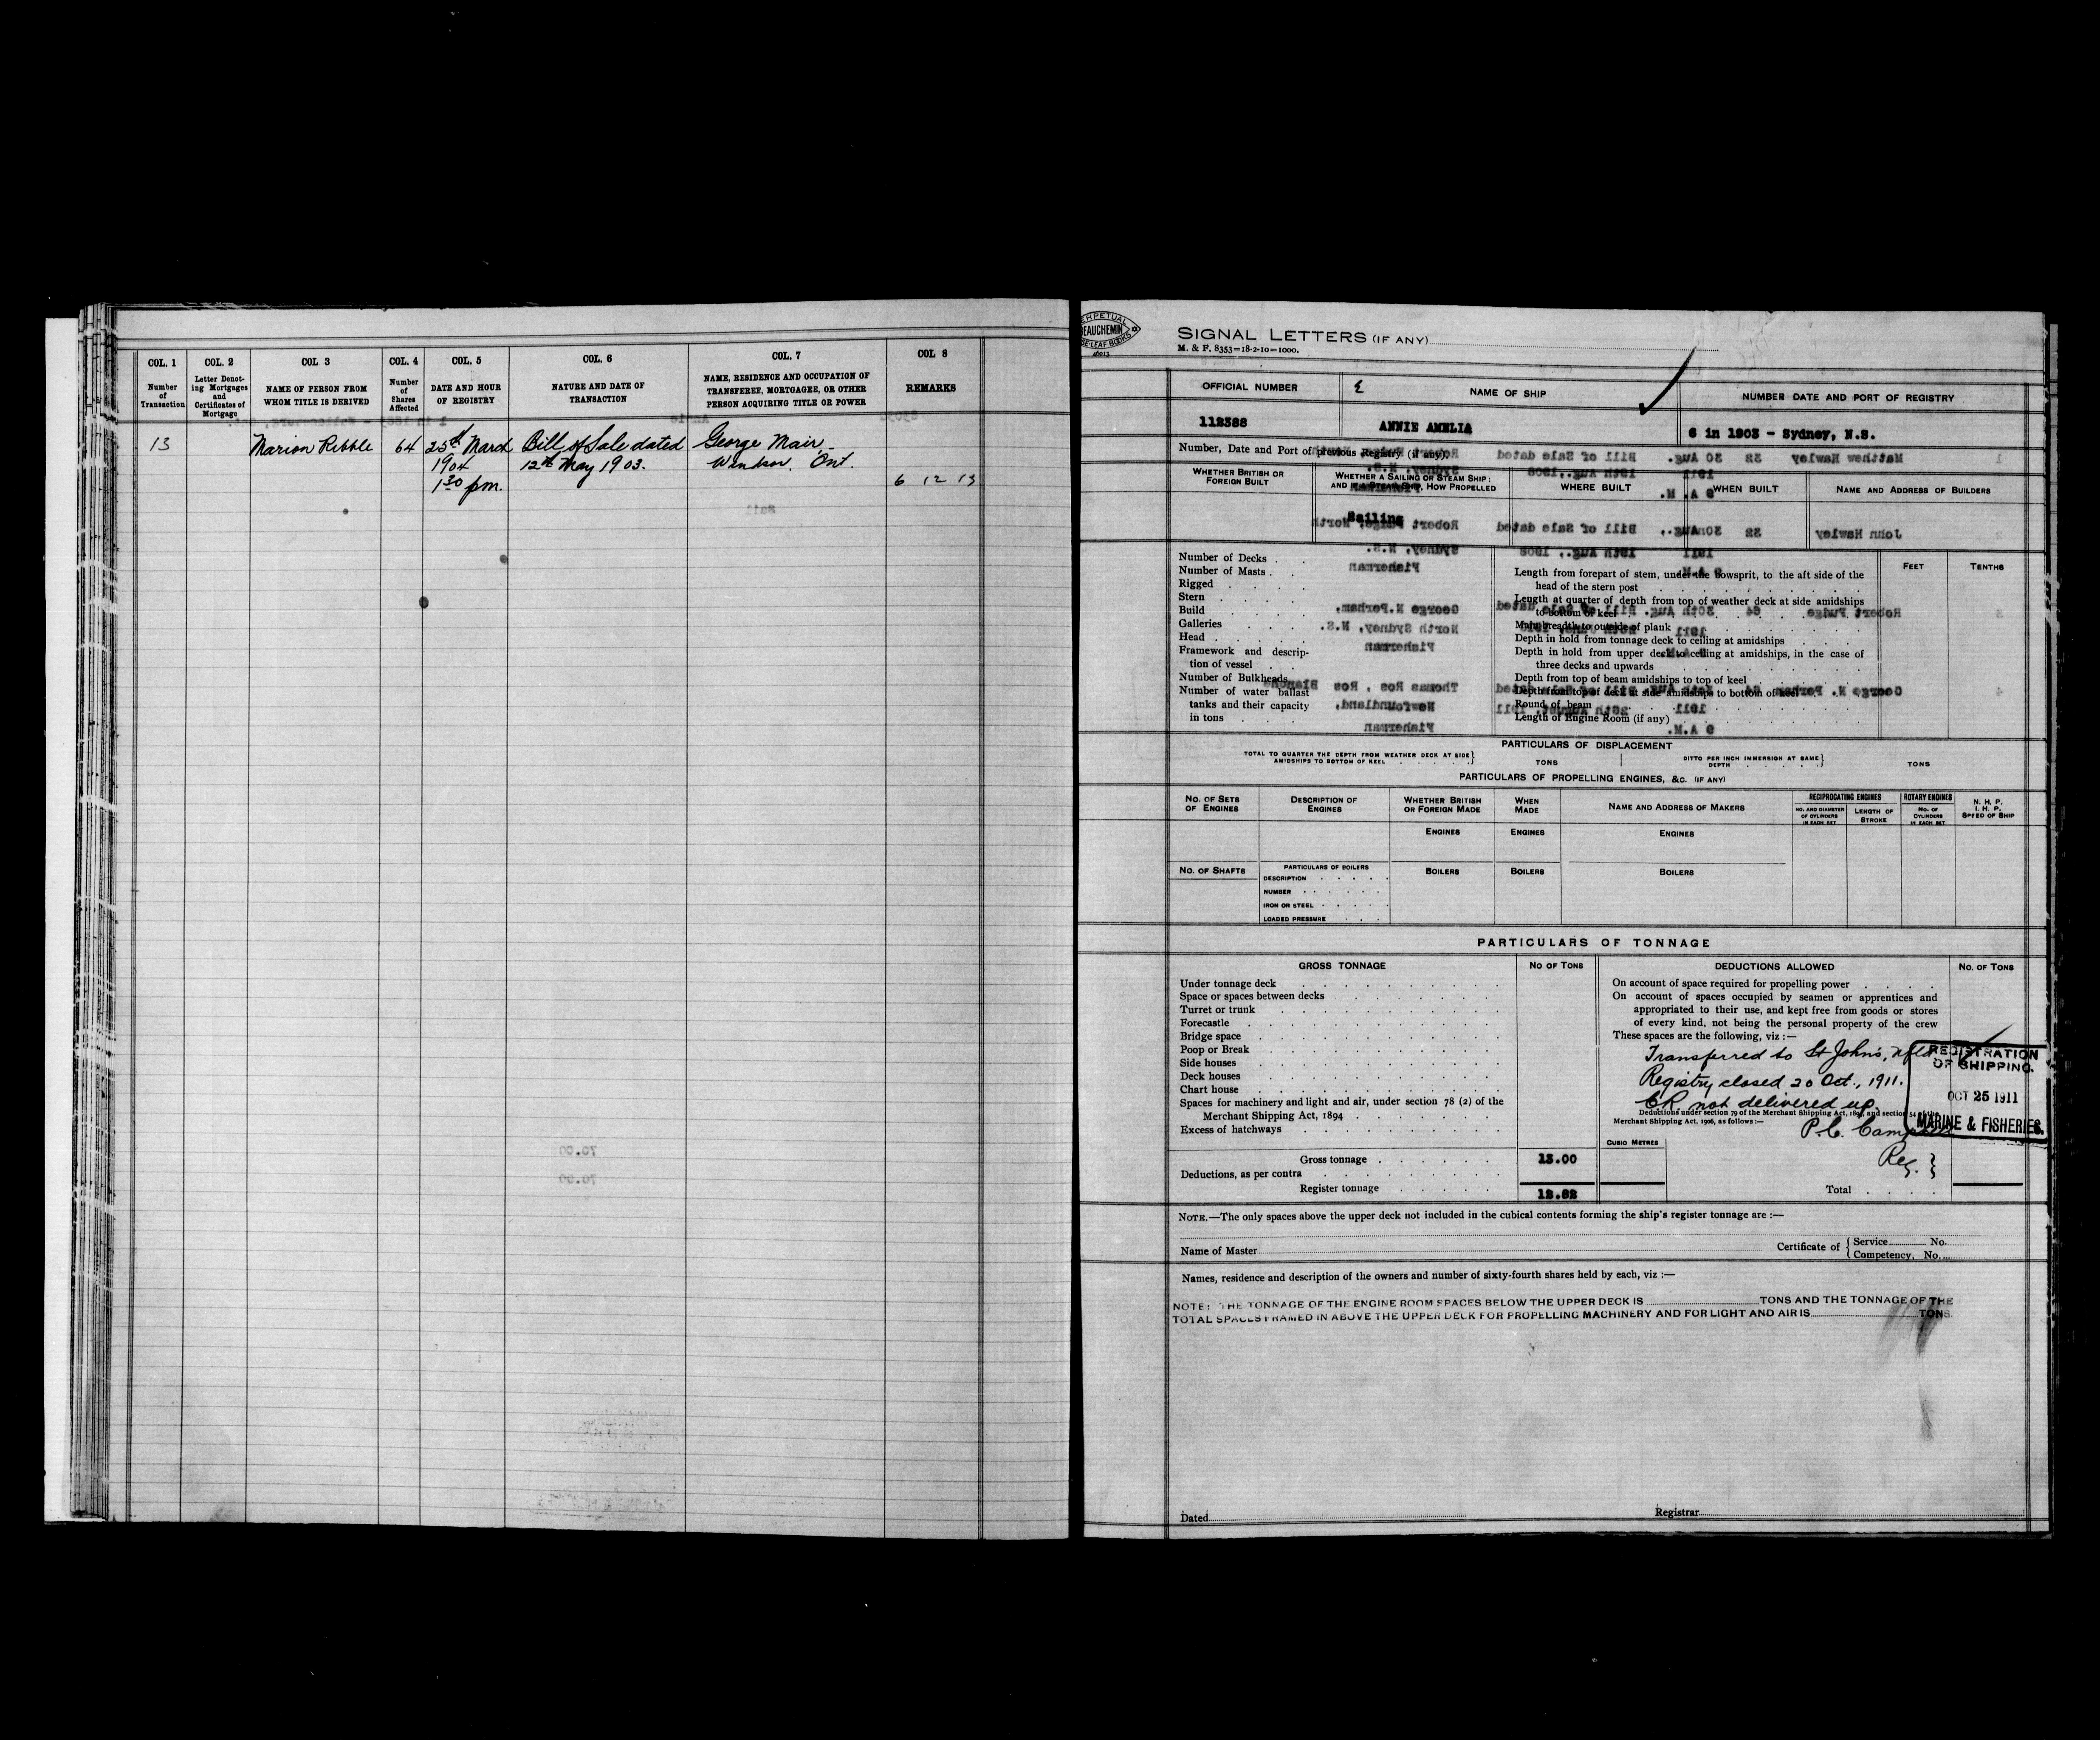 COL. 1
COL. 2
COL. 3
COL. 4
COL. 5
COL. 6
COL. 7
COL 8
Number of Transaction
Letter Denot-ing Mortgages and Certificates of Mortgage
NAME OF PERSON FROM WHOM TITLE IS DERIVED
Number of Shares Affected
DATE AND HOUR OF REGISTRY
NATURE AND DATE OF TRANSACTION
NAME, RESIDENCE AND OCCUPATION OF TRANSFEREE, MORTGAGEE, OR OTHER PERSON ACQUIRING TITLE OR POWER
REMARKS
13 Marion Ribble 64 25th March Bill of Sale dated George Mair
1904 12th May 1903. Windsor, Ont.
1 30 pm. 6 12 13
PERPETUAL
BEAUCHEMIN
46013
SIGNAL LETTERS (IF ANY)
M. & F. 8353=18-2-10=1000.
OFFICIAL NUMBER
NAME OF SHIP
NUMBER DATE AND PORT OF REGISTRY
112388
ANNIE AMELIA
6 in 1903 - Sydney, N.S.
Number, Date and Port of previous Registry (if any)
WHETHER BRITISH OR FOREIGN BUILT
WHETHER A SAILING OR STEAM SHIP: AND IF A STEAM SHIP, HOW PROPELLED
WHERE BUILT
WHEN BUILT
NAME AND ADDRESS OF BUILDERS
Sailing
Number of Decks
Number of Masts
Rigged
Stern
Build
Galleries
Head
Framework and descrip-
tion of vessel
Number of Bulkheads
Number of water ballast
tanks and their capacity
in tons
FEET
TENTHS
Length from forepart of stem, under the bowsprit, to the aft side of the
head of the stern post
Length at quarter of depth from top of weather deck at side amidships
to bottom of keel
Main breadth to outside of plank
Depth in hold from tonnage deck to ceiling at amidships
Depth in hold from upper deck to ceiling at amidships, in the case of
three decks and upwards
Depth from top of beam amidships to top of keel
Depth from top of deck at side amidships to bottom of keel
Round of beam
Length of Engine Room (if any)
PARTICULARS OF DISPLACEMENT
TOTAL TO QUARTER THE DEPTH FROM WEATHER DECK AT SIDE AMIDSHIPS TO BOTTOM OF KEEL
TONS
DITTO PER INCH IMMERSION AT SAME DEPTH
TONS
PARTICULARS OF PROPELLING ENGINES, &C. (IF ANY)
NO. OF SETS OF ENGINES
DESCRIPTION OF ENGINES
WHETHER BRITISH OR FOREIGN MADE
WHEN MADE
NAME AND ADDRESS OF MAKERS
RECIPROCATING ENGINES
NO. AND DIAMETER OF CYLINDERS IN EACH SET
LENGTH OF STROKE
ROTARY ENGINES
NO. OF CYLINDERS IN EACH SET
N. H. P.
I. H. P.
SPEED OF SHIP
ENGINES
ENGINES
ENGINES
NO. OF SHAFTS
PARTICULARS OF BOILERS
DESCRIPTION
NUMBER
IRON OR STEEL
LOADED PRESSURE
BOILERS
BOILERS
BOILERS
PARTICULARS OF TONNAGE
GROSS TONNAGE
NO OF TONS
DEDUCTIONS ALLOWED
NO. OF TONS
Under tonnage deck
Space or spaces between decks
Turret or trunk
Forecastle
Bridge space
Poop or Break
Side houses
Deck houses
Chart house
Spaces for machinery and light and air, under section 78 (2) of the
Merchant Shipping Act, 1894
Excess of hatchways
Gross tonnage 13.00
Deductions, as per contra
Register tonnage 12.82
On account of space required for propelling power
On account of spaces occupied by seamen or apprentices and
appropriated to their use, and kept free from goods or stores
of every kind, not being the personal property of the crew
These spaces are the following, viz :—
Transferred to St John's, Nfld
Registry closed 20 Oct., 1911.
CR not delivered up
Deductions under section 79 of the Merchant Shipping Act, 1894, and section 54 of the
Merchant Shipping Act, 1906, as follows :—
P. C. Campbell
Reg.
CUBIC METRES
Total
REGISTRATION
OF SHIPPING.
OCT 25 1911
MARINE & FISHERIES.
NOTE.—The only spaces above the upper deck not included in the cubical contents forming the ship's register tonnage are :—
Name of Master
Certificate of { Service No.
Competency, No.
Names, residence and description of the owners and number of sixty-fourth shares held by each, viz :—
NOTE: THE TONNAGE OF THE ENGINE ROOM SPACES BELOW THE UPPER DECK IS TONS AND THE TONNAGE OF THE
TOTAL SPACES FRAMED IN ABOVE THE UPPER DECK FOR PROPELLING MACHINERY AND FOR LIGHT AND AIR IS TONS
Dated
Registrar